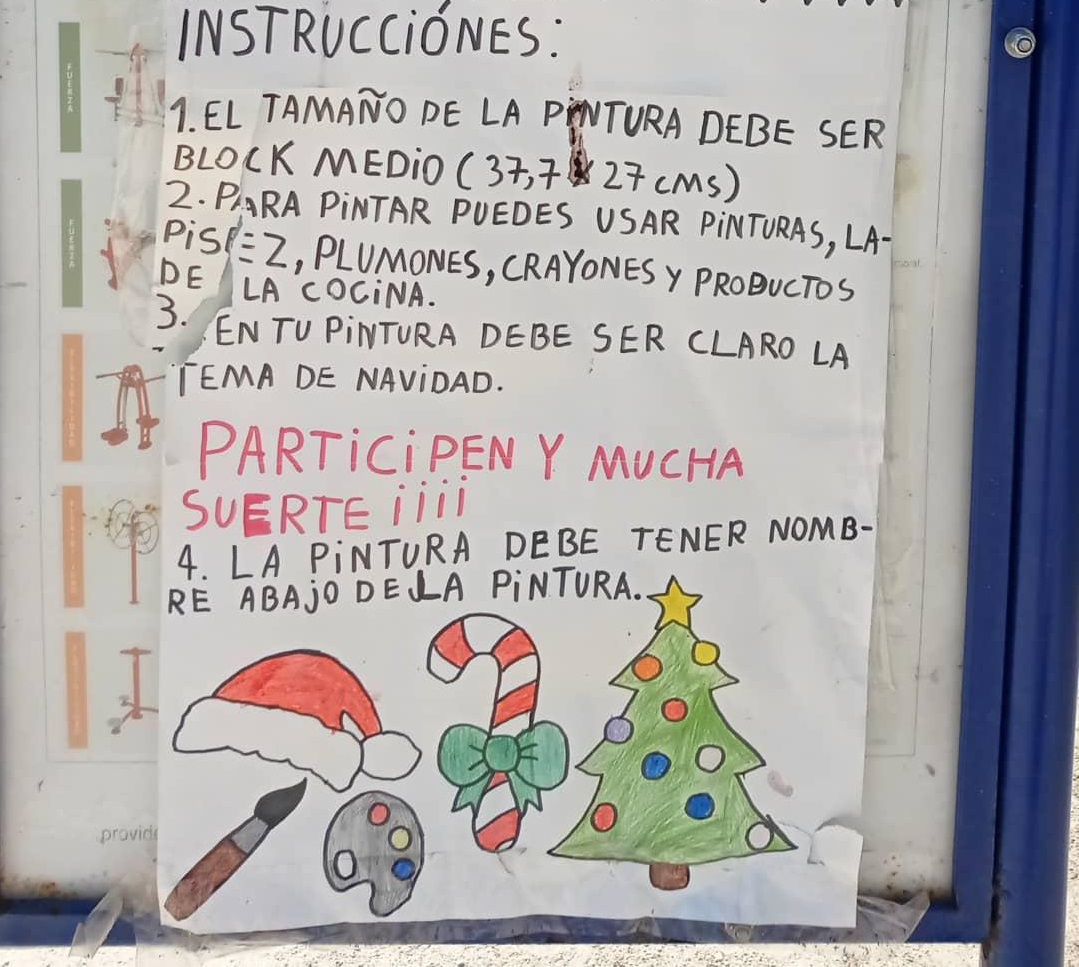 INSTRUCCIÓNES:
1. EL TAMAÑO DE LA PINTURA DEBE SER
BLOCK MEDIO (37,7 X 27 CMS)
2. PARA PINTAR PUEDES USAR PINTURAS, LA-
PIS EZ, PLUMONES, CRAYONES Y PRODUCTOS
DE LA COCINA.
3. EN TU PINTURA DEBE SER CLARO LA
TEMA DE NAVIDAD.
PARTICIPEN Y MUCHA
SUERTE ¡¡¡¡
4. LA PINTURA DEBE TENER NOMB-
RE ABAJO DE LA PINTURA.
FUERZA
FUERZA
provid